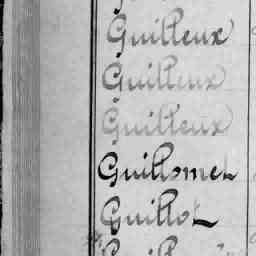 Guilleux
Guilleux
Guilleux
Guillomet
Guillot